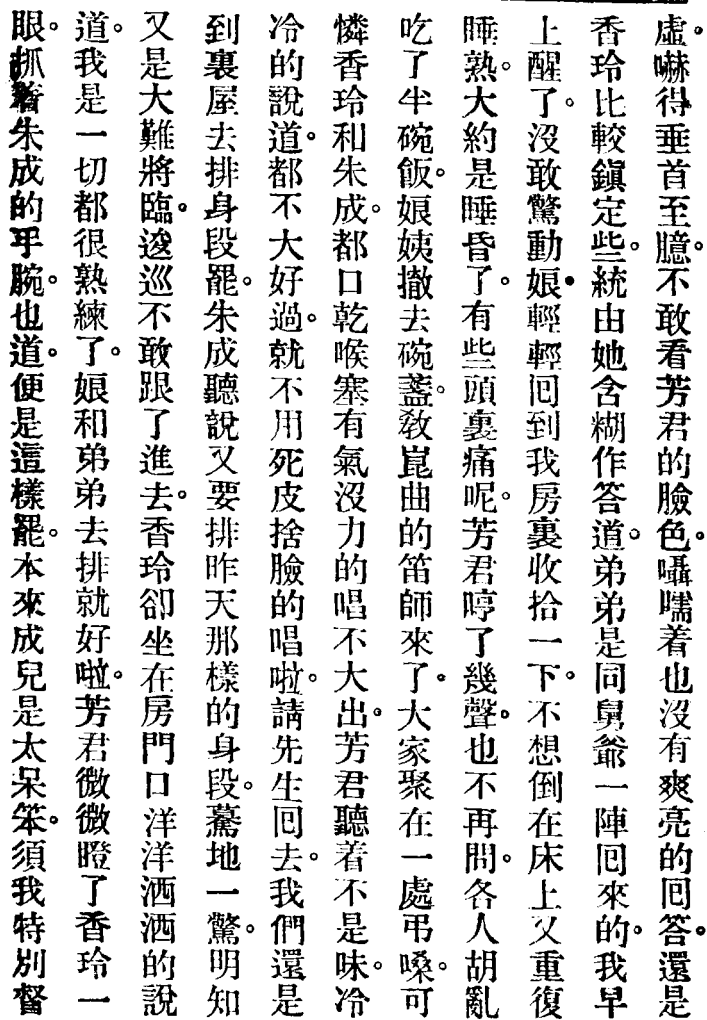 虛。嚇得垂首至臆。不敢看芳君的臉色。囁嚅着也沒有爽亮的囘答。還是
香玲比較鎭定些。統由她含糊作答道。弟弟是同舅爺一陣囘來的。我早
上醒了。沒敢驚動娘。輕輕囘到我房裏收拾一下。不想倒在床上又重復
睡熟。大約是睡昏了。有些頭裏痛呢。芳君哼了幾聲。也不再問。各人胡亂
吃了半碗飯。娘姨撤去碗盞。敎崑曲的笛師來了。大家聚在一處弔嗓。可
憐香玲和朱成。都口乾喉塞有氣沒力的唱不大出。芳君聽着不是味。冷
冷的說道。都不大好過。就不用死皮捨臉的唱啦。請先生囘去。我們還是
到裏屋去排身段罷。朱成聽說又要排昨天那樣的身段。驀地一驚。明知
又是大難將臨。逡巡不敢跟了進去。香玲卻坐在房門口洋洋洒洒的說
道。我是一切都很熟練了。娘和弟弟去排就好啦。芳君微微瞪了香玲一
眼。抓着朱成的手腕。也道。便是這樣罷。本來成兒是太呆笨。須我特別督